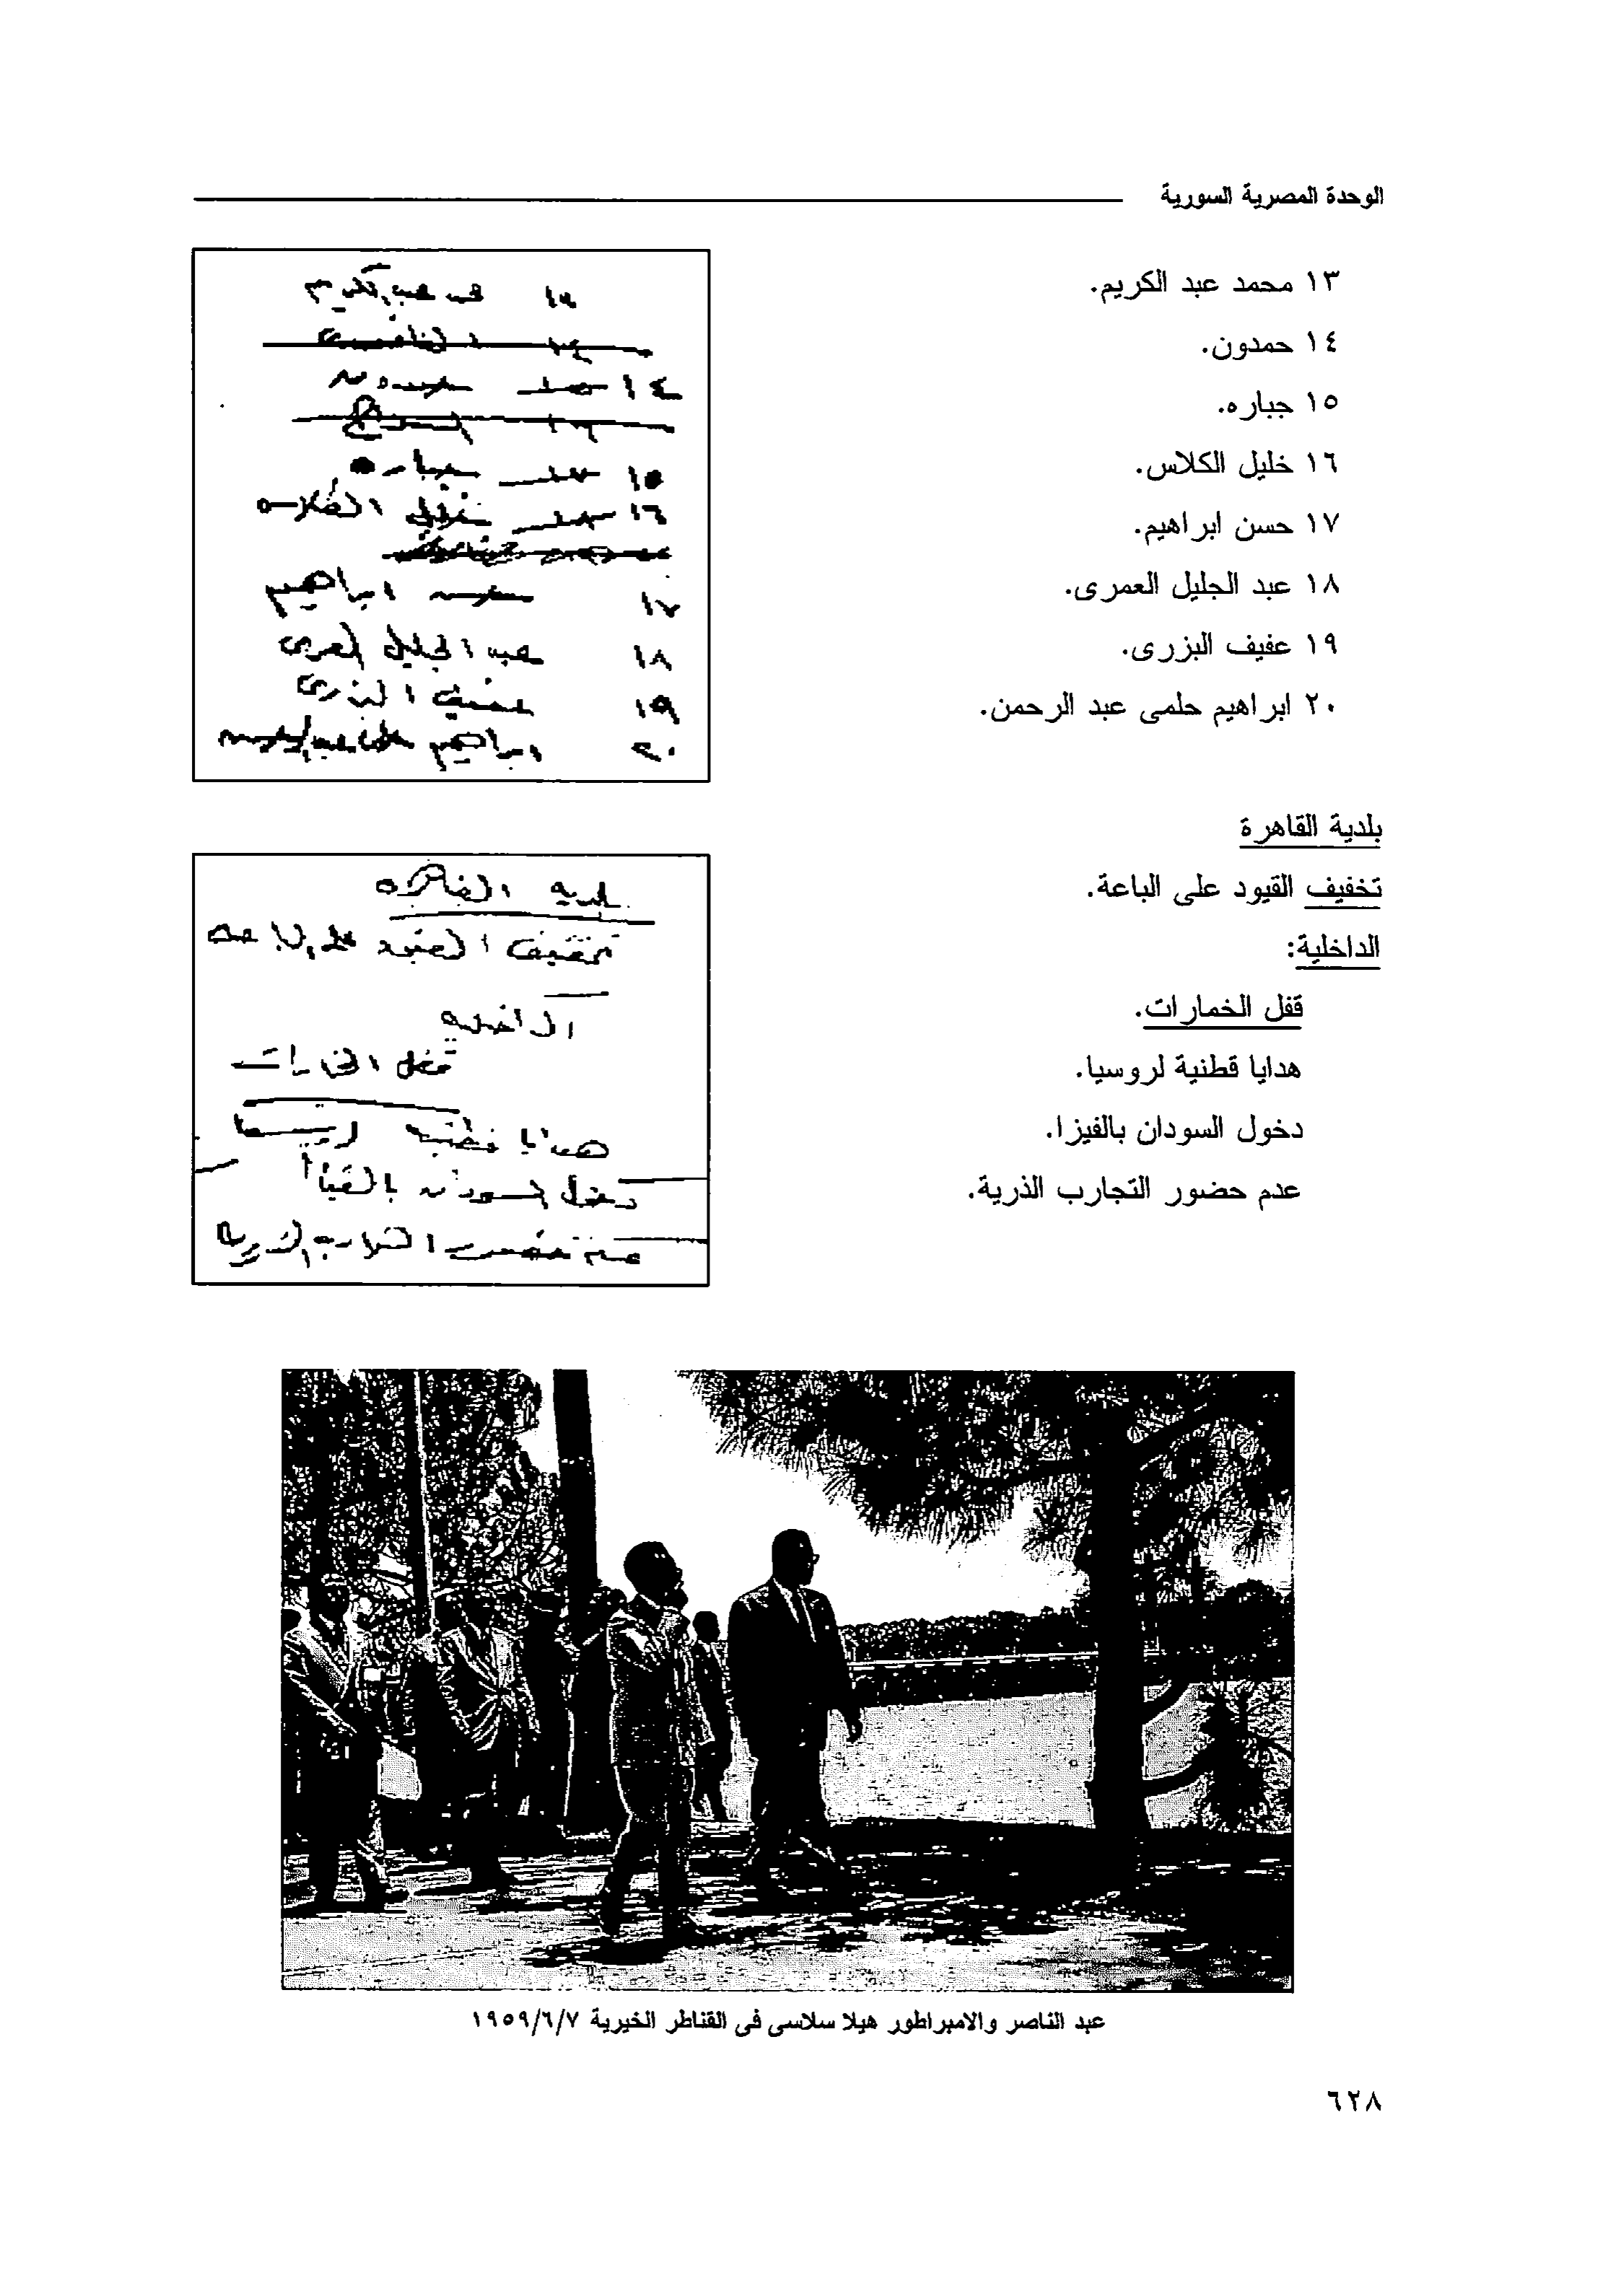 الوحدة المصرية السورية
١٣ محمد عبد الكريم.
١٤ حمدون.
١٥ جباره.
١٦ خليل الكلاس.
١٧ حسن ابراهيم.
١٨ عبد الجليل العمرى.
١٩ عفيف البزرى.
٢٠ ابراهيم حلمى عبد الرحمن.
١٤ حمدون
١٥ جباره
١٦ خليل الكلاس
١٧ حسن ابراهيم
١٨ عبد الجليل العمرى
١٩ عفيف البزرى
٢٠ ابراهيم حلمى عبد الرحمن
بلدية القاهرة
تخفيف القيود على الباعة.
الداخلية:
قفل الخمارات.
هدايا قطنية لروسيا.
دخول السودان بالفيزا.
عدم حضور التجارب الذرية.
بلدية القاهرة
تخفيف القيود على الباعة
الداخلية
قفل الخمارات
هدايا قطنية لروسيا
دخول السودان بالفيزا
عدم حضور التجارب الذرية
عبد الناصر والامبراطور هيلا سلاسى فى القناطر الخيرية ١٩٥٩/٦/٧
٦٢٨